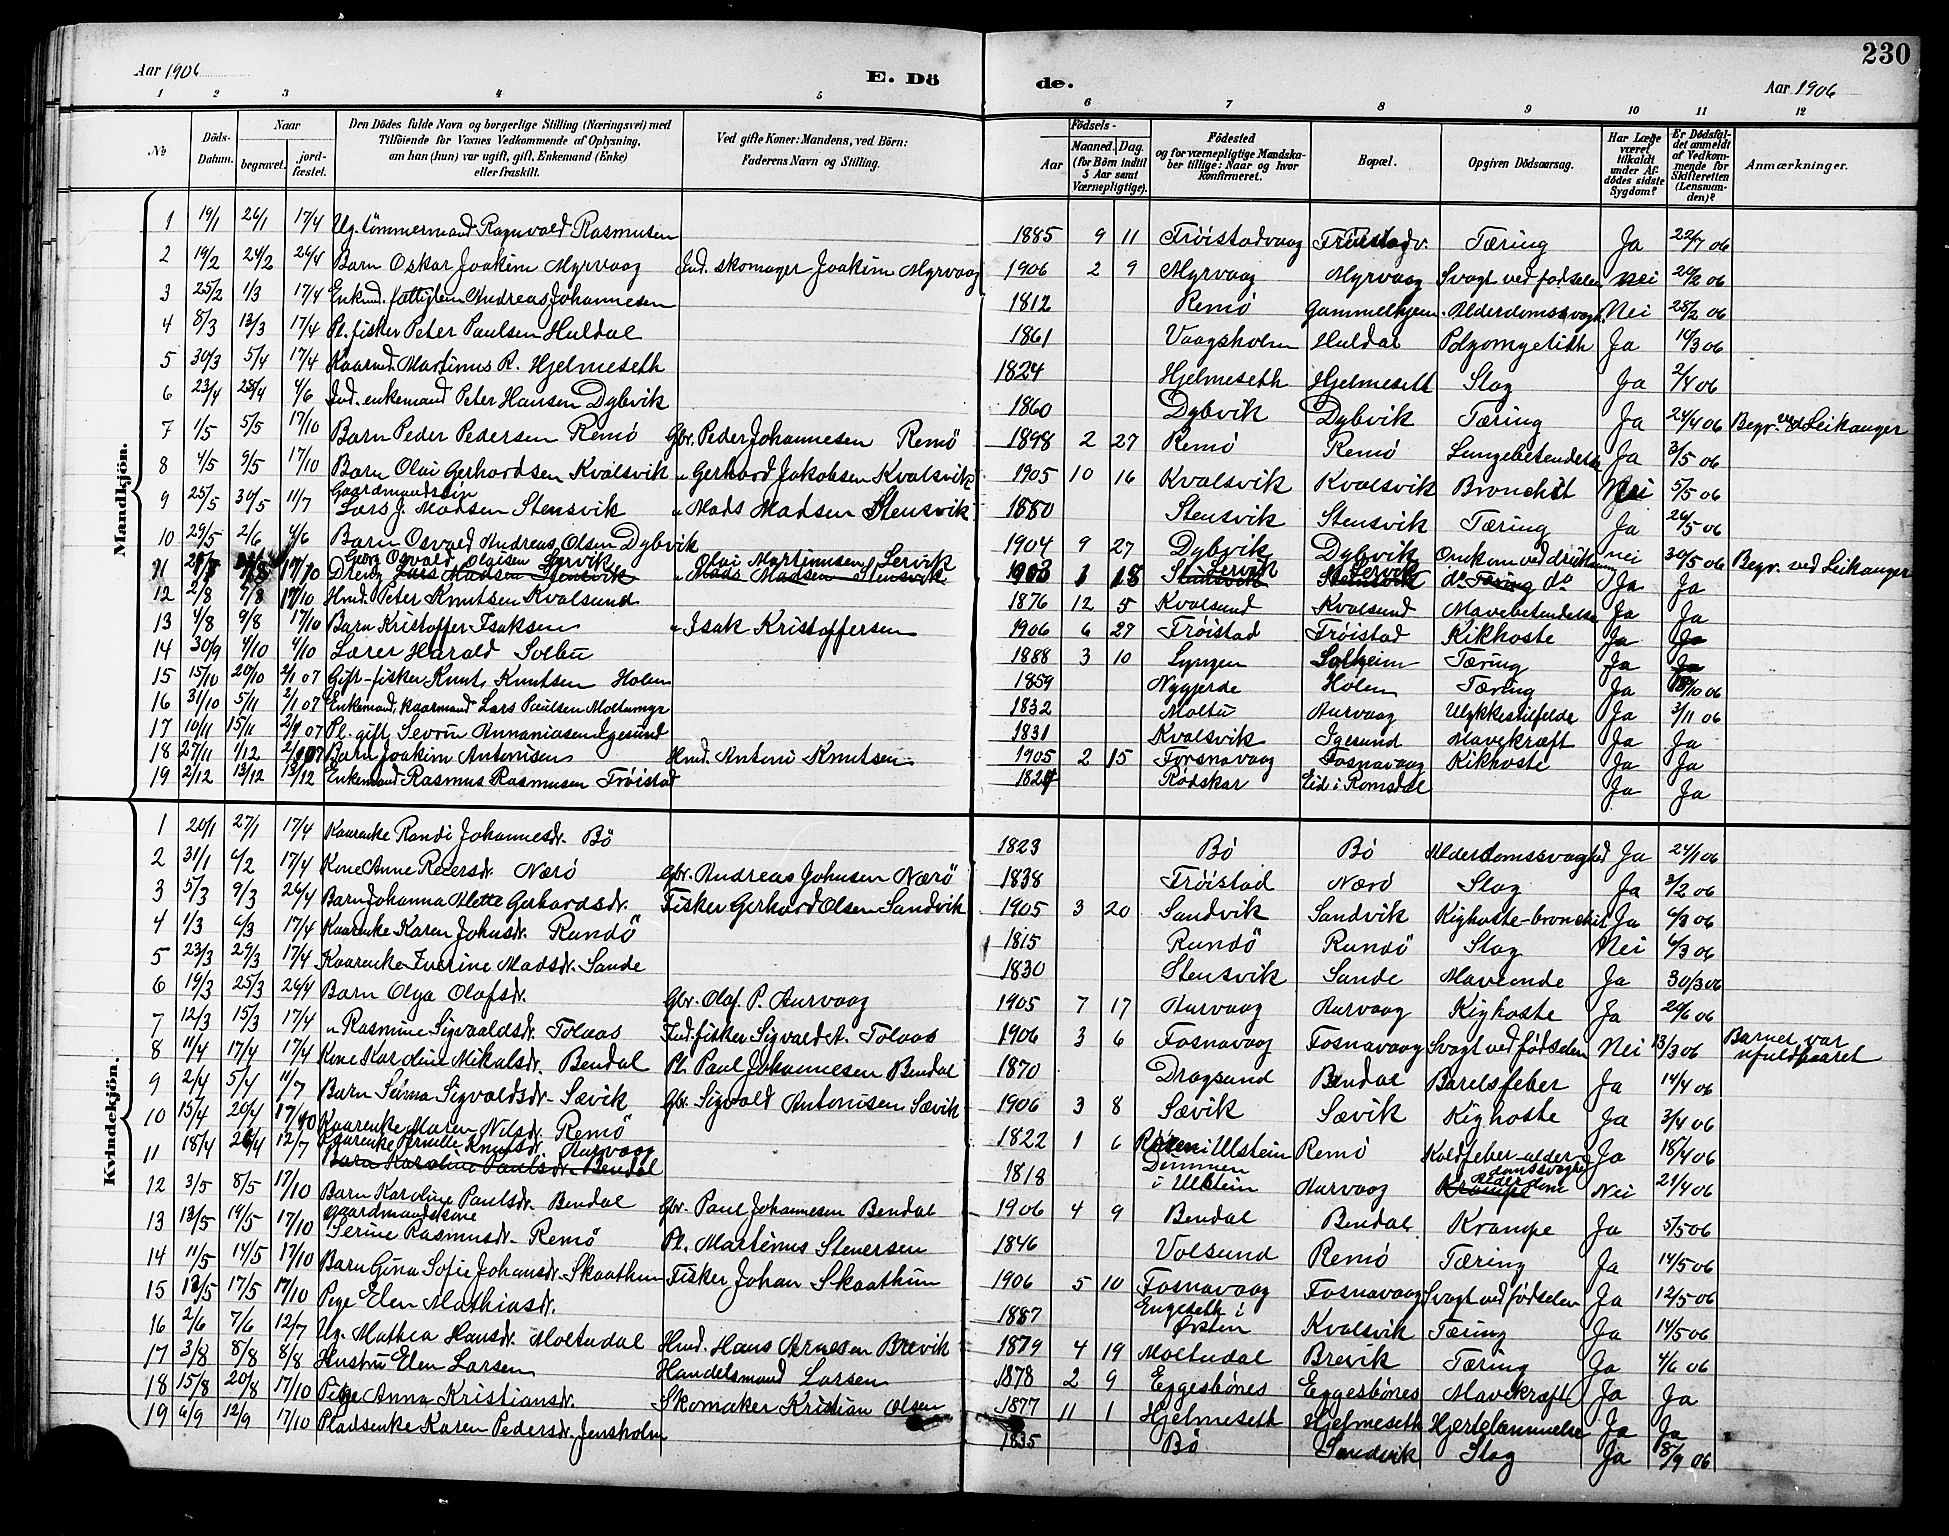 230
Aar 1906 E. Dö de. Aar 1906
1 2 3 4 5 6 7 8 9 10 11 12
No. Döds-Datum. Naar begravet. jordfæstet. Den Dödes fulde Navn og borgerlige Stilling (Næringsvei) med Tilföiende for Voxnes Vedkommende af Oplysning, om han (hun) var ugift, gift, Enkemand (Enke) eller fraskilt. Ved gifte Koner: Mandens, ved Börn: Faderens Navn og Stilling. Födsels- Aar Maaned. Dag. (for Börn indtil 5 Aar samt Værnepligtige). Födested og for værnepligtige Mandskaber tillige: Naar og hvor Konfirmeret. Bopæl. Opgiven Dödsaarsag. Har Læge været tilkaldt under Afdödes sidste Sygdom? Er Dödsfaldet anmeldt af Vedkommende for Skifteretten (Lensmanden)? Anmærkninger.
Mandkjön.
1 19/1 26/1 17/4 Ug. tømmermand Ragnvald Rasmusen 1885 9 11 Frøistadvaag Frøistadv. Tæring Ja 22/7 06
2 19/2 24/2 26/4 Barn Oskar Joakim Myrvaag Ind. skomager Joakim Myrvaag 1906 2 9 Myrvaag Myrvaag Svagt ved fødselen Nei 20/2 06
3 25/2 1/3 17/4 Enkmd. fattiglem Andreas Johannesen 1812 Remø Gammelhjem. Alderdomssvagh. Nei 28/2 06
4 8/3 13/3 17/4 Pl. fisker Peter Paulsen Huldal 1861 Vaagsholm Huldal Ja 10/3 06
5 30/3 5/4 17/4 Kaarmd. Martinus R. Hjelmeseth 1824 Hjelmeseth Hjelmeseth Slag Ja 2/4 06
6 23/4 28/4 4/6 Ind. enkemand Peter Hansen Dybvik 1860 Dybvik Dybvik Tæring Ja 24/4 06 Begr. ved Leikanger
7 1/5 5/5 17/10 Barn Peder Pedersen Remö Gbr. Peder Johannesen Remö 1898 2 27 Remö Remö Lungebetendelse Ja 3/5 06
8 4/5 9/5 17/10 Barn Olai Gerhardsen Kvalsvik " Gerhard Jakobsen Kvalsvik 1905 10 16 Kvalsvik Kvalsvik Bronchit Nei 5/5 06
9 25/5 30/5 11/7 Gaardmandssøn Lars J. Madsen Stensvik " Mads Madsen Stensvik 1880 Stensvik Stensvik Tæring Ja 26/5 06
10 29/5 2/6 4/6 Barn Osvald Andreas Olsen Dybvik 1904 9 27 Dybvik Dybvik Omkom ved drukning Nei 30/5 06 Begr. ved Leikanger
11 17/10 Georg Osvald Olaisen Servik Dreng Lars Madsen Stensvik Olai Martinusen Servik " Mads Madsen Stensvik 1903 1 18 Servik Stensvik Servik Stensvik do Tæring do Ja Ja
12 2/8 7/8 17/10 Hmd. Peter Knutsen Kvalsund 1876 12 5 Kvalsund Kvalsund Mavebetendelse Ja Ja
13 4/8 9/8 17/10 Barn Kristoffer Isaksen " Isak Kristoffersen 1906 6 27 Frøistad Frøistad Kikhoste Ja Ja
14 30/9 4/10 4/10 Lærer Harald Solbu 1888 3 10 Lyngen Solheim Tæring Ja Ja
15 15/10 20/10 2/1 07 Gift fisker Knut Knutsen Holen 1859 Nygjerde Holen Tæring Ja 18/10 06
16 31/10 5/11 2/1 07 Enkemand, kaarmand Lars Paulsen Moltumyr 1832 Moltu Aurvaag Ulykkestilfelde Ja 3/11 06
17 10/11 15/11 2/1 07 Pl. gift Sevrin Annaniasen Igesund 1831 Kvalsvik Igesund Mavekræft Ja Ja
18 27/11 1/12 2/1 07 Barn Joakim Antonisen Hmd. Antoni Knutsen 1905 2 15 Forsnavaag Fosnavaag Kikhoste Ja Ja
19 2/12 13/12 13/12 Enkemand Rasmus Rasmusen Frøistad 1824 Rødskar Eid i Romsdal Ja Ja
Kvindekjön.
1 20/1 27/1 17/4 Kaarenke Randi Johannesdr. Bö 1823 Bö Bö Alderdomssvaghed Ja 24/1 06
2 31/1 6/2 17/4 Kone Anne Reiersdr. Nærö Gbr. Andreas Johnsen Nærö 1838 Frøistad Nærö Slag Ja 3/2 06
3 5/3 9/3 26/4 Barn Johanna Alette Gerhardsdr. Fisker Gerhard Olsen Sandvik 1905 3 20 Sandvik Sandvik Kighoste-bronchit Ja 6/3 06
4 1/3 6/3 17/4 Kaarenke Karen Johnsdr. Rundö 1815 Rundö Rundö Slag Nei 6/3 06
5 23/3 29/3 17/4 Kaarenke Iverine Madsdr. Sande 1830 Stensvik Sande Maveonde Ja 30/3 06
6 19/3 25/3 26/4 Barn Olga Olafsdr. Gbr. Olaf P. Aurvaag 1905 7 17 Aurvaag Aurvaag Kighoste Ja 20/6 06
7 12/3 15/3 17/4 " Rasmine Sigvaldsdr. Tolaas Ind. fisker Sigvald A. Tolaas 1906 3 6 Fosnavaag Fosnavaag Svagt ved fødselen Nei 13/3 06 Barnet var ufuldbaaret
8 11/4 17/4 17/4 Kone Karoline Mikalsdr. Bendal Pl. Paul Johannesen Bendal 1870 Dragsund Bendal Barselsfeber Ja 14/4 06
9 2/4 5/4 11/7 Barn Sigvaldsdr. Sævik Gbr. Sigvald Antonisen Sævik 1906 3 8 Sævik Sævik Kighoste Ja 3/4 06
10 15/4 20/4 17/10 Kaarenke Maren Nilsdr. Remö 1822 1 6 i Ulstein Remö Koldfeber-alderdomssvaghed Ja 18/4 06
11 18/4 26/4 12/7 Kaarenke Pernille Knutsdr. Aurvaag Barn Karoline Paulsdr. Bendal 1818 Dimmen i Ulstein Aurvaag Alderdom Krampe Nei 21/4 06
12 3/5 8/5 17/10 Barn Karoline Paulsdr. Bendal Gbr. Paul Johannesen Bendal 1906 4 9 Bendal Bendal Krampe Ja 5/5 06
13 13/5 19/5 17/10 Gaardmandskone Serine Rasmusdr. Remö Pl. Martinus Steversen 1846 Volsund Remö Tæring Ja 14/5 06
14 11/5 14/5 17/10 Barn Gina Sofie Johansdr. Skaathun Fisker Johan Skaathun 1906 5 10 Fosnavaag Fosnavaag Svagt ved fødselen Ja 12/5 06
15 13/5 17/5 17/10 Pige Elen Mathiasdr. 1887 Engeseth i Ørsten Kvalsvik Tæring Ja 14/5 06
16 2/6 7/6 12/7 Ug. Mathea Hansdr. Moltudal Hmd. Hans Arnesen Brevik 1879 4 19 Moltudal Brevik Tæring Ja 4/6 06
17 3/8 8/8 8/8 Hustru Elen Larsen Handelsmand Larsen 1878 2 9 Eggesbönes Eggesbönes Mavekræft Ja Ja
18 15/8 20/8 17/10 Pige Anna Kristiansdr. Skomaker Kristian Olsen 1877 11 1 Hjelmeseth Hjelmeseth Hjertelammelse Ja Ja
19 6/9 12/9 17/10 Pladsenke Karen Pedersdr. Jensholm 1835 Bö Sandvik Slag Ja 8/9 06